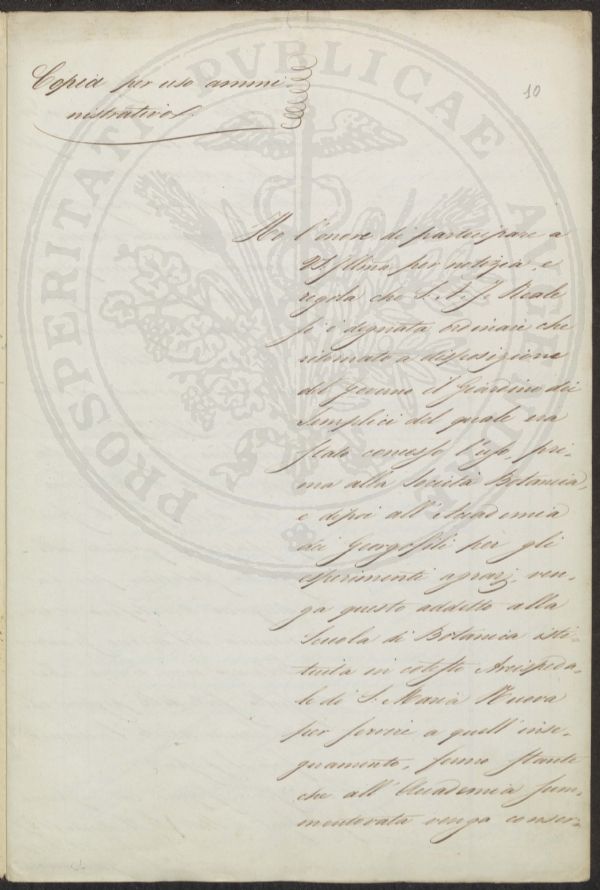 10
Copia per uso ammi-
nistrativo
Ho l'onore di partecipare a
VS. Illma per notizia, e
regola che S. A. I. e Reale
si è degnata ordinare che
ritornato a disposizione
del Governo il Giardino dei
Semplici del quale era
stato concesso l'uso, pri-
ma alla Società Botanica,
e dipoi all'Accademia
dei Georgofili per gli
esperimenti agrarj, ven-
ga questo addetto alla
Scuola di Botanica isti-
tuita in cotesto Arcispeda-
le di S. Maria Nuova
per servire a quell'inse-
gnamento, fermo stante
che all'Accademia sum-
mentovata venga conser-
PROSPERITATI PVBLICAE AVGENDAE